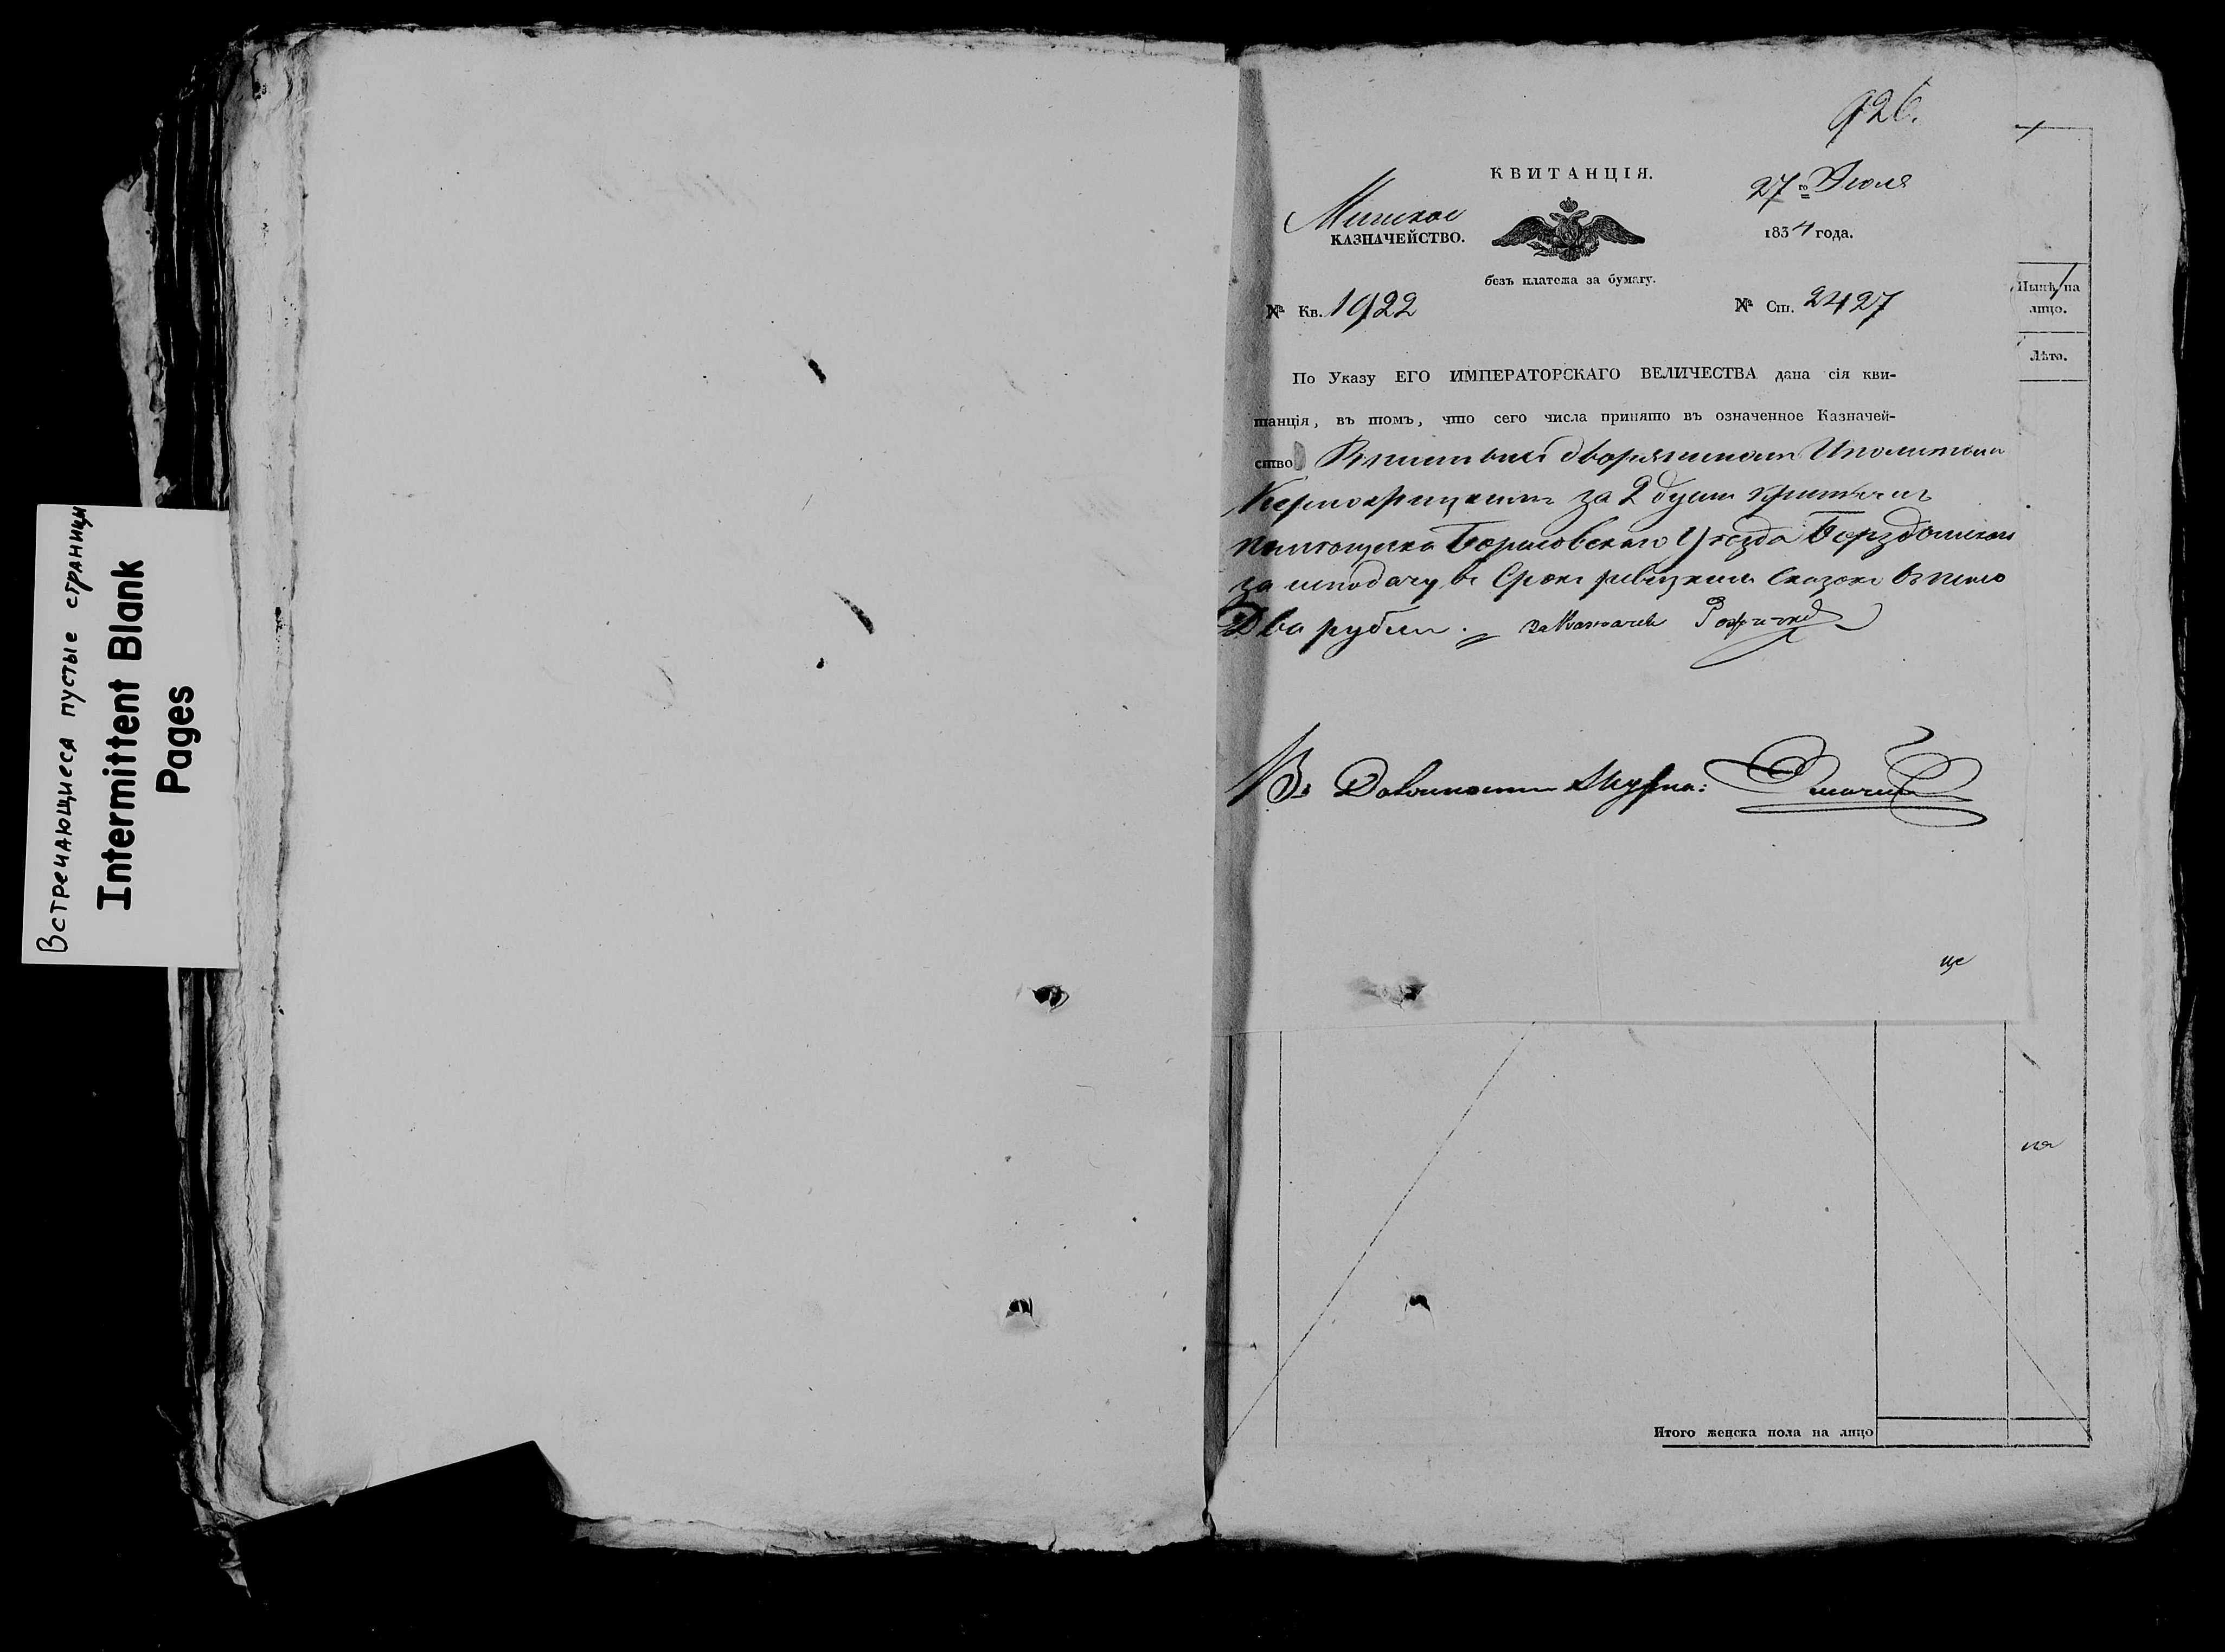 Встречающиеся пустые страницы
Intermittent Blank
Pages
926.
КВИТАНЦІЯ.
27го Июля
Минское
КАЗНАЧЕЙСТВО.
1834 года.
безъ платежа за бумагу.
№ Кв. 1922
№ Ст. 2427
Нынѣ на
лицо.
Лѣта.
По Указу ЕГО ИМПЕРАТОРСКАГО ВЕЛИЧЕСТВА дана сія кви-
танція, въ томъ, что сего числа принято въ означенное Казначей-
ство дворяниномъ Иполитомъ
за 2 души
Борисовскаго Уѣзда
за неподачу въ Срокъ ревизкихъ Сказокъ
Два рубли.
Въ Должности
це
на
Итого женска пола на лицо